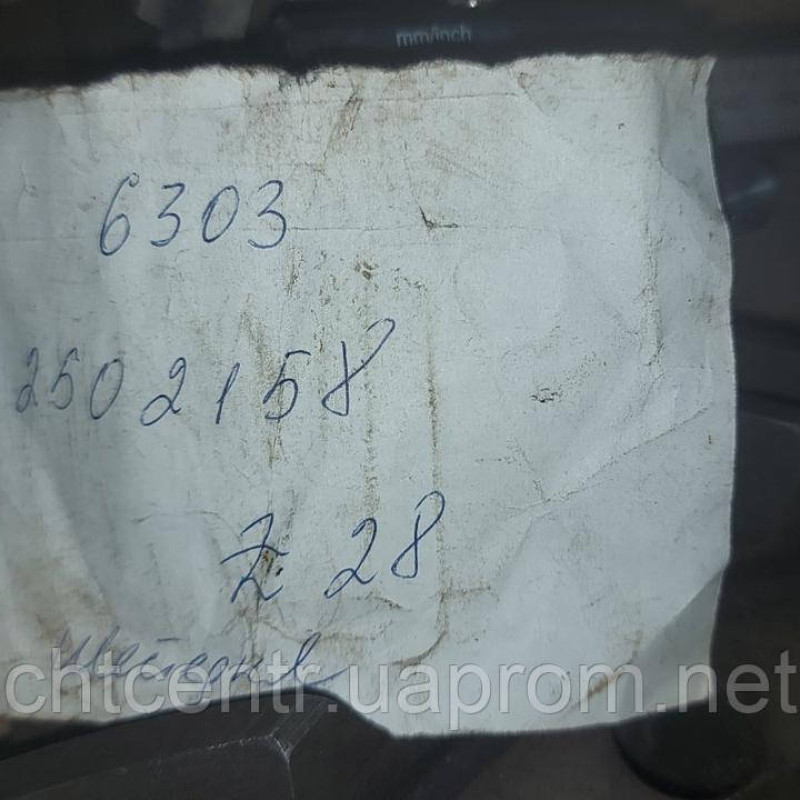 mm/inch
6303
2502158
Z 28
шестерня
chtcentr.uaprom.net